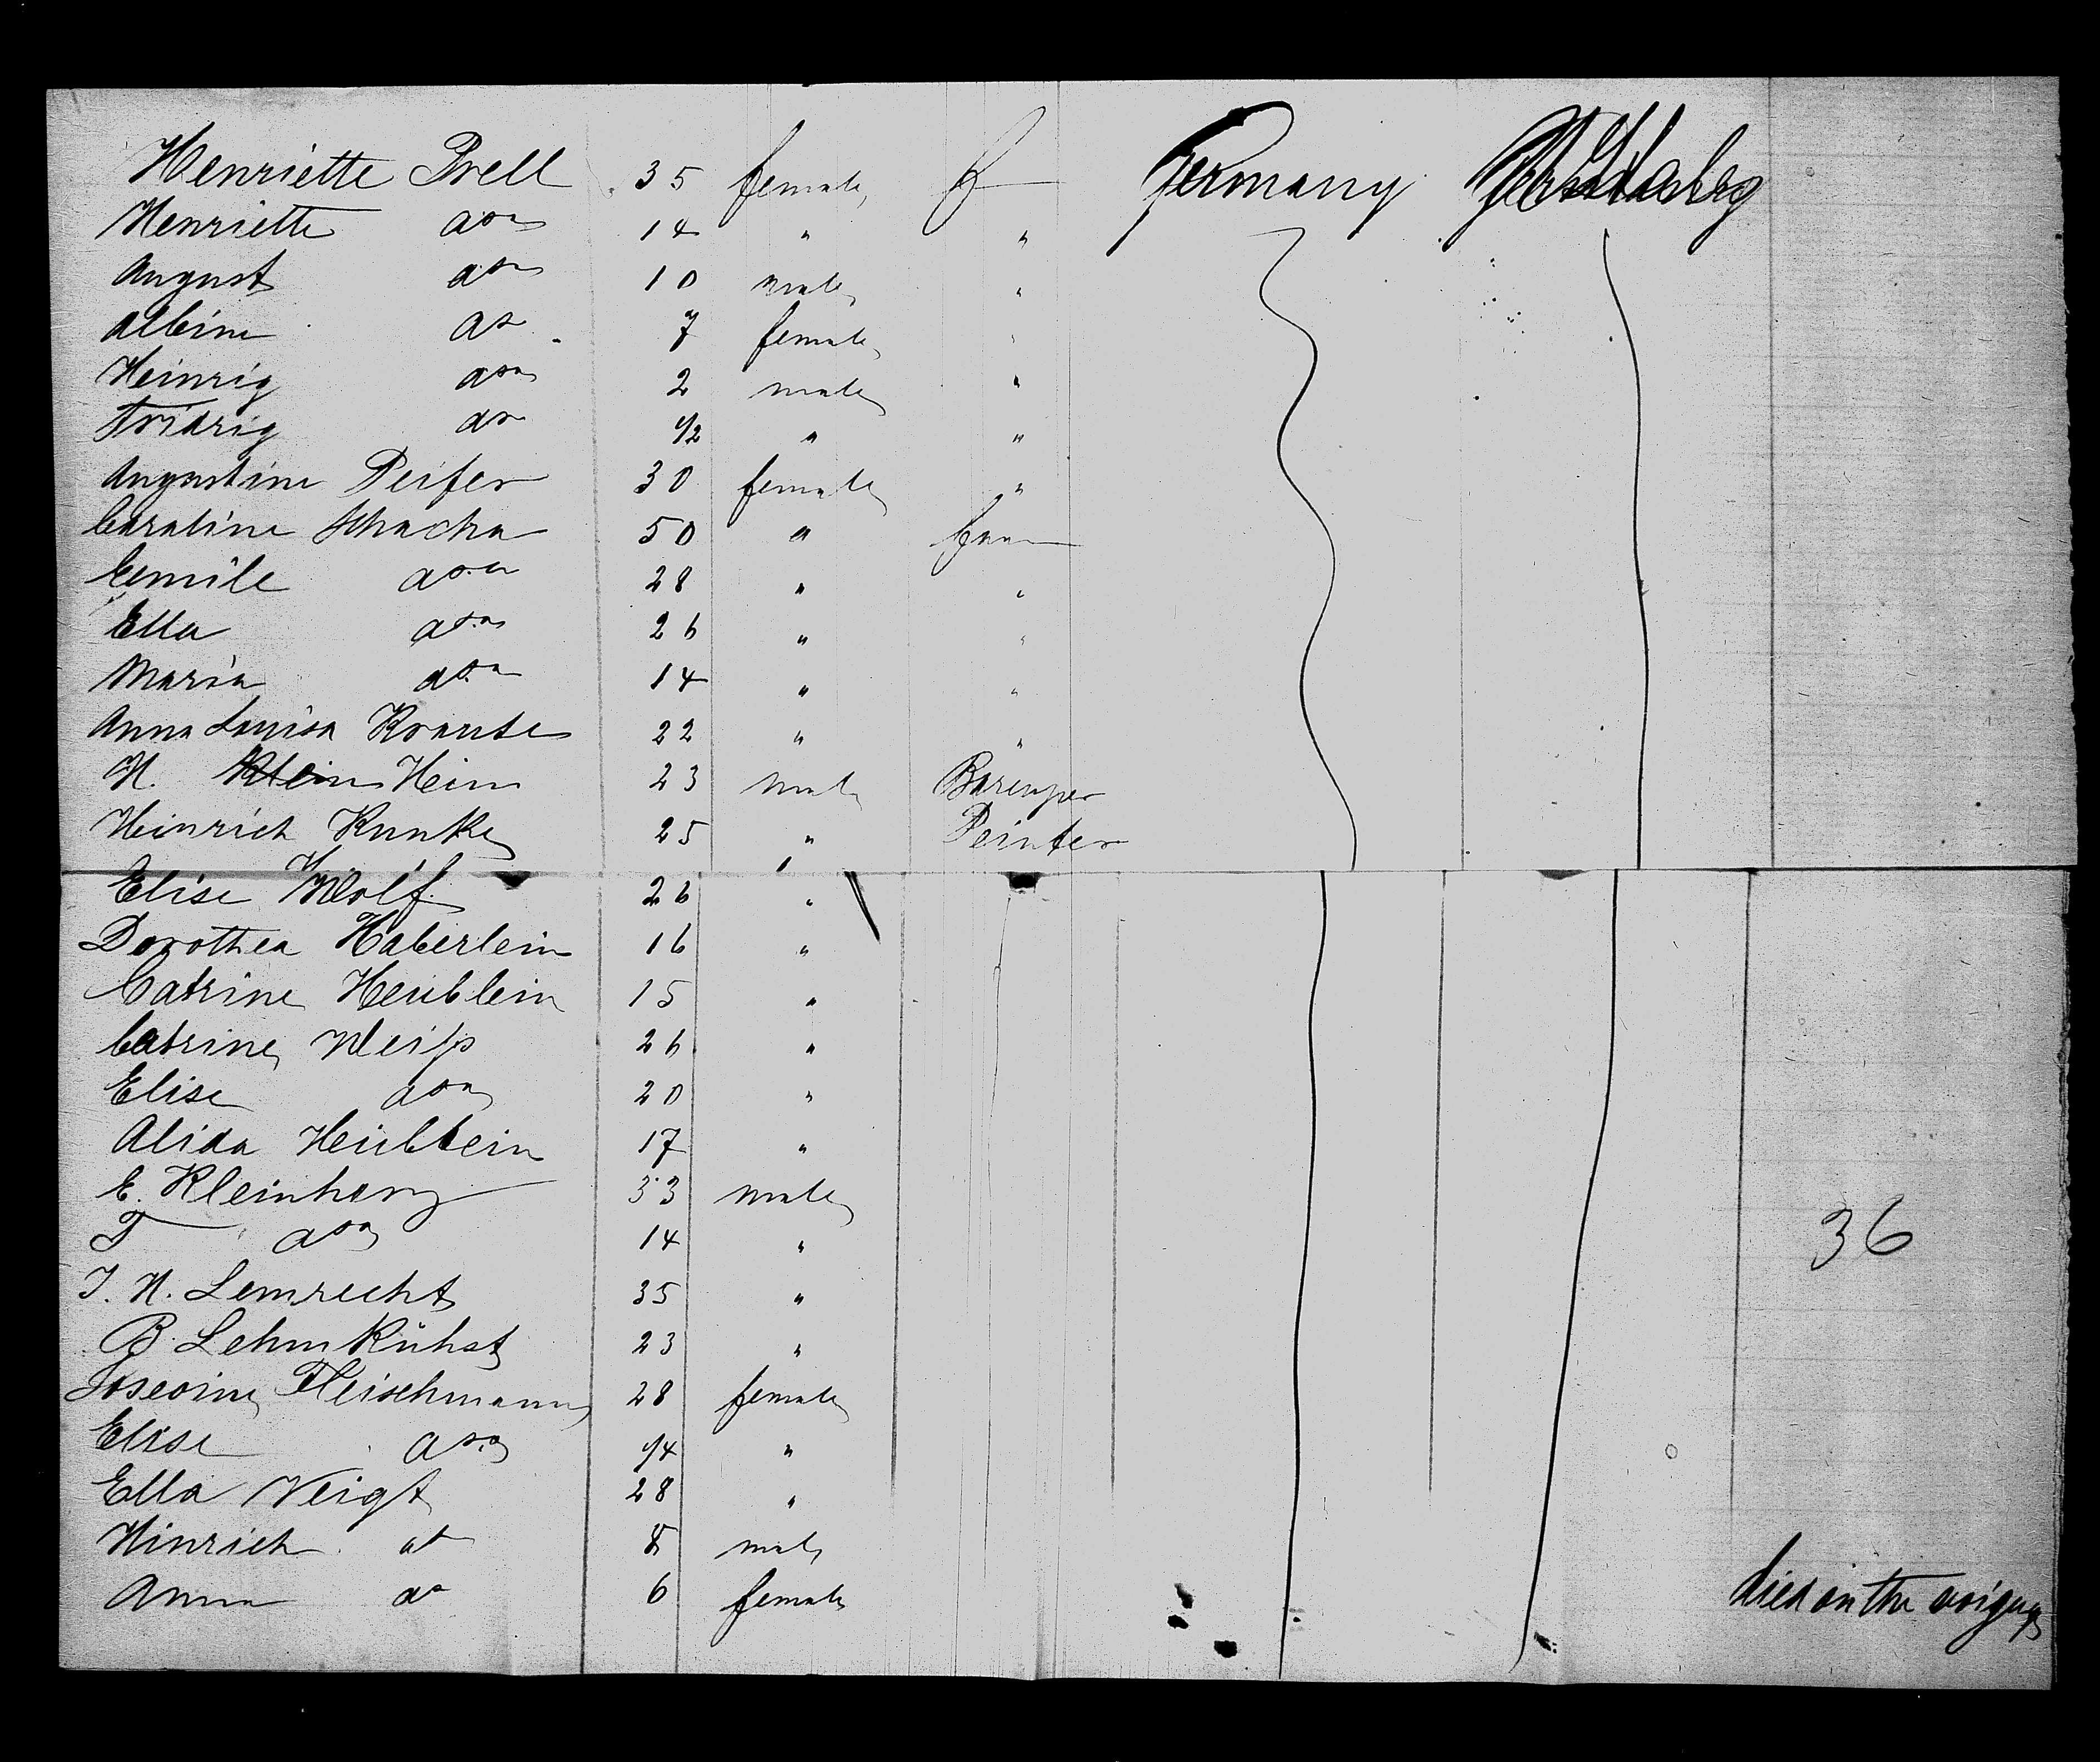 Henriette Prell 35 female Germany
Henriette do 14 " "
August do 10 male "
Albine do 7 female "
Heinrig do 2 male "
Fridrig do 1/2 " "
Augustine Peifer 30 female "
Caroline Schacha 50 "
Cemile do 28 " "
Ella do 26 " "
Maria do 14 " "
Anna Louisa Krause 22 " "
H. Klein Heim 23 male
Heinrich Kunke 25 " Peinter
Elise Wolf 26 "
Dorothea Haberlein 16 "
Catrine Heublein 15 "
Catrine Weiss 26 "
Elise do 20 "
Alida Heublein 17 "
E. Kleinhenz 33 male
T do 14 " 36
J. H. Lemrecht 35 "
B. Lehmkühst 23 "
Fleischmann 28 female
Elise do 1/4 "
Ella Veigt 28 "
Hinrich do 8 male
Anna do 6 female died on the voigage